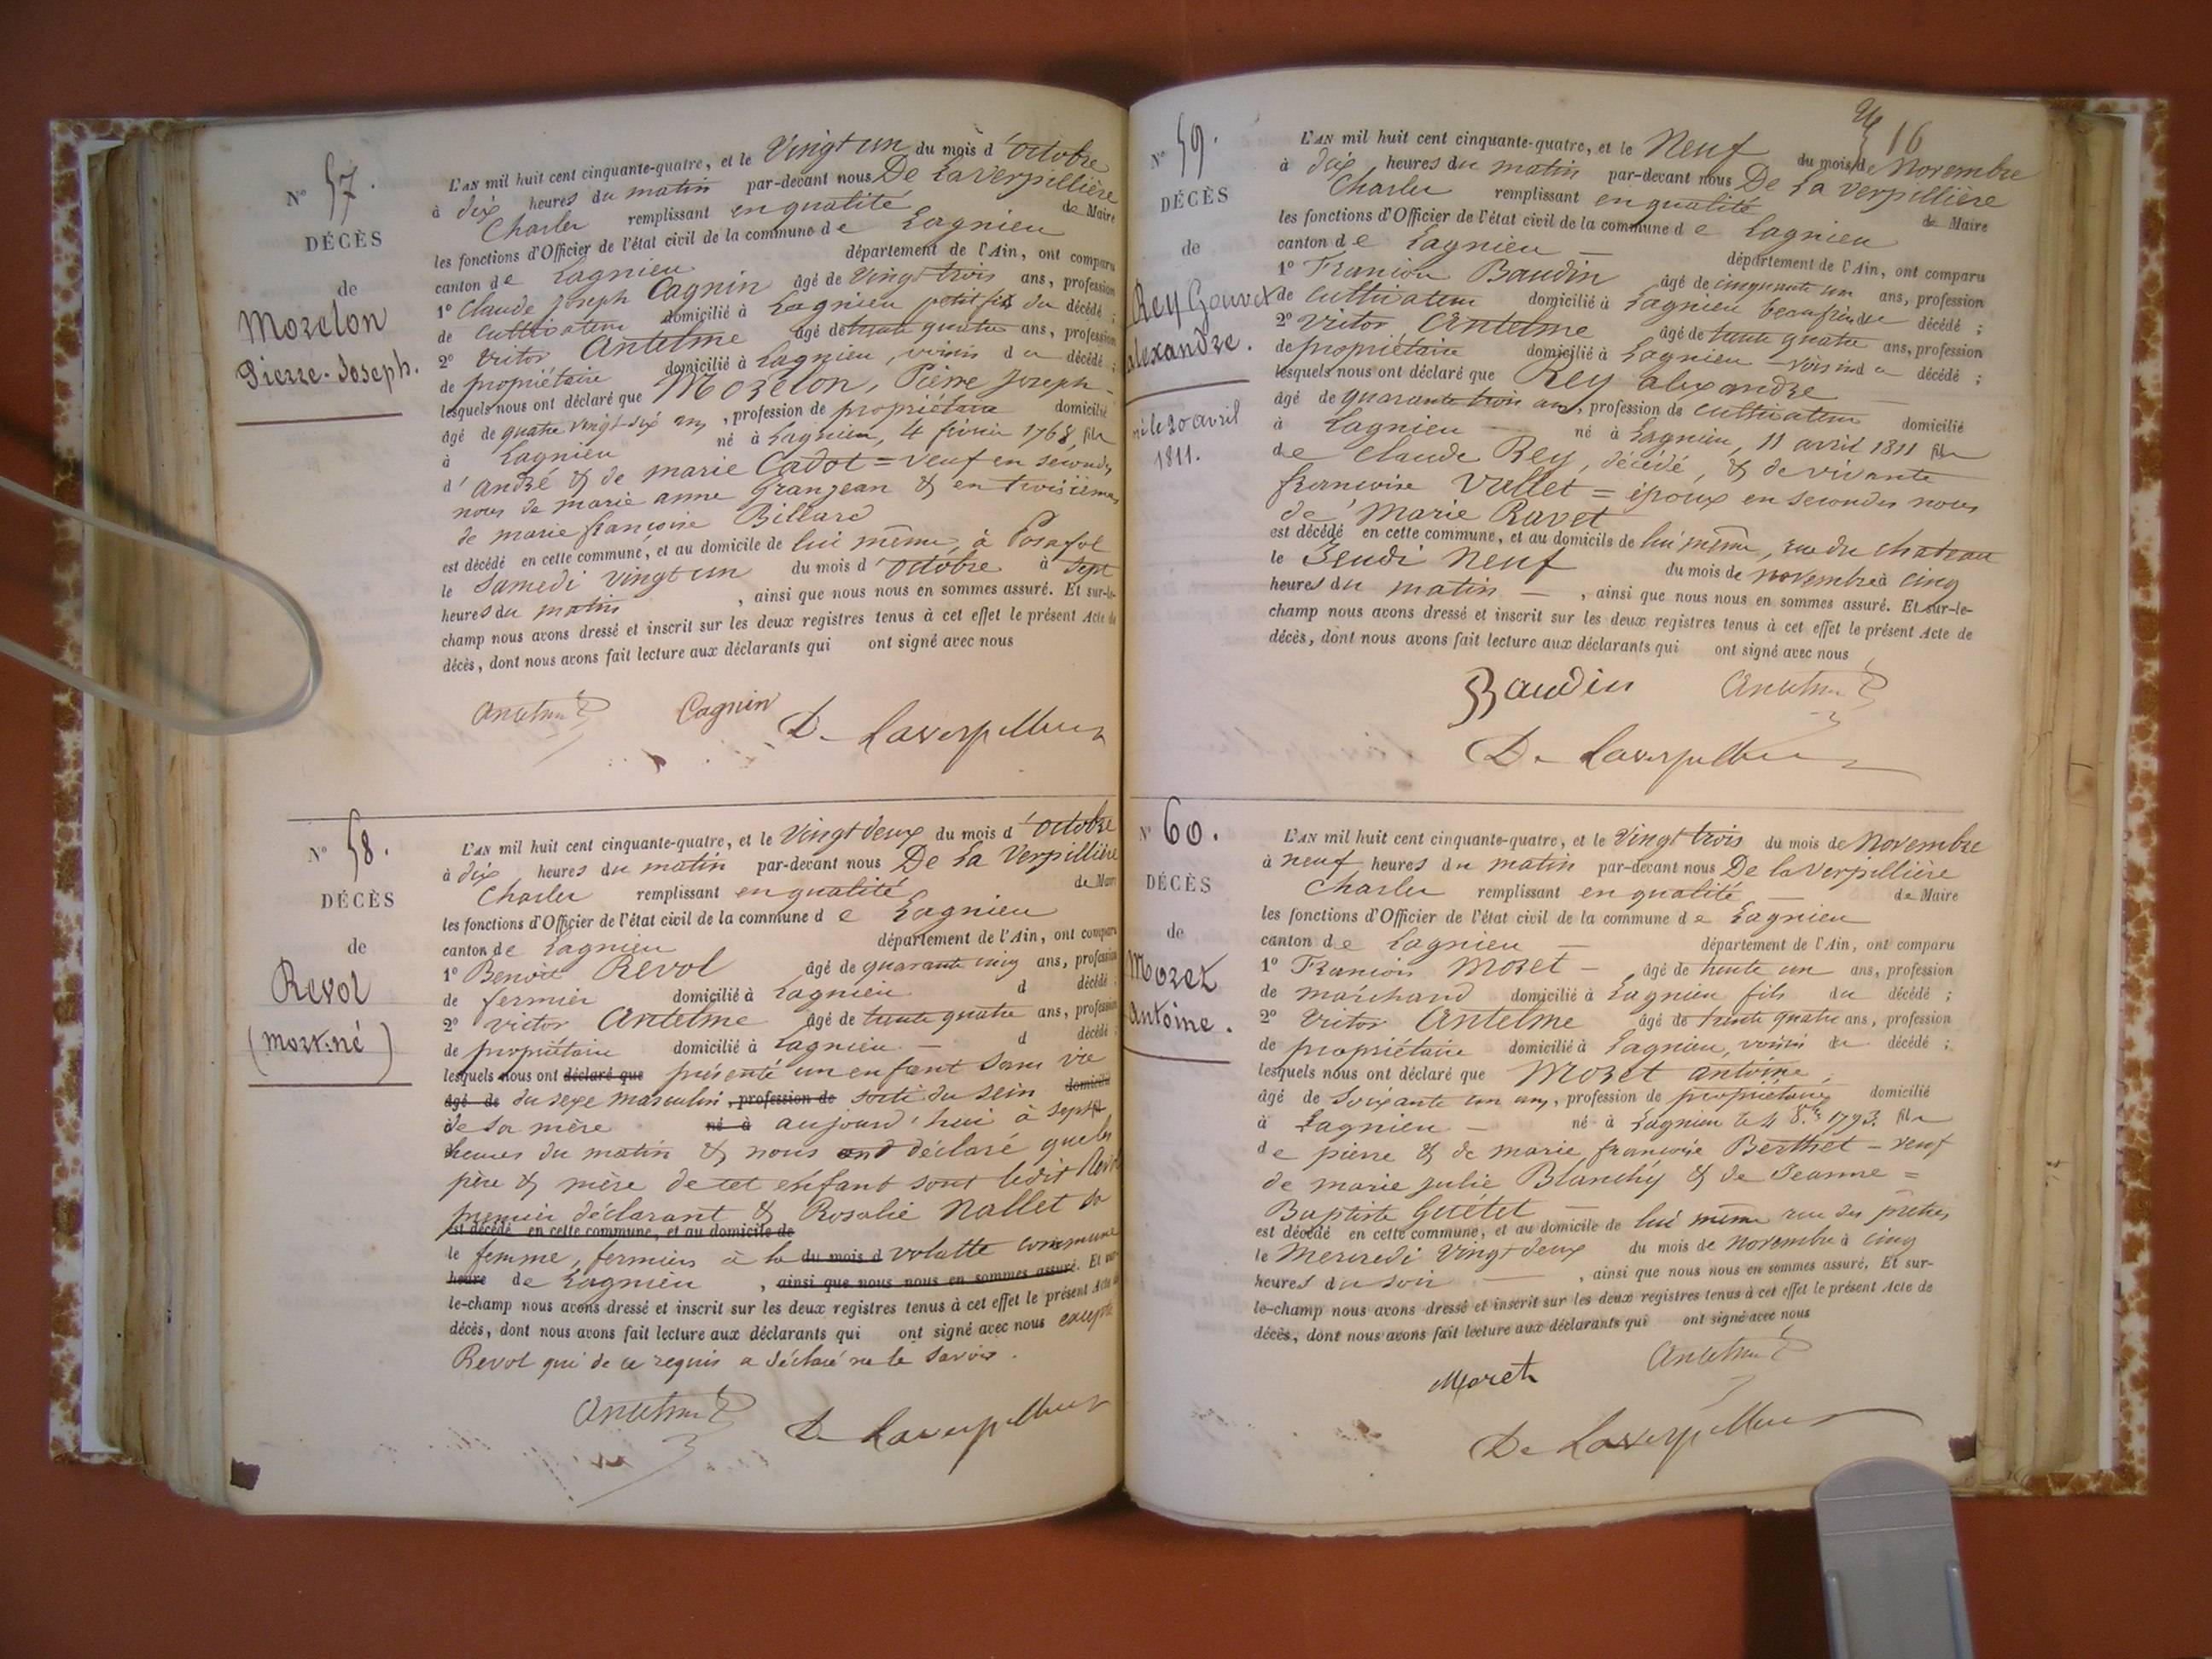 N° 57.
DÉCÈS
de
Morelon
Pierre-Joseph.
L'AN mil huit cent cinquante-quatre, et le Vingt un du mois d'octobre
à dix heures du matin par-devant nous De Laverpillière
Charles remplissant en qualité de Maire
les fonctions d'Officier de l'état civil de la commune de Lagnieu
canton de Lagnieu département de l'Ain, ont comparu
1° Claude Joseph Cagnin âgé de Vingt trois ans, profession
de cultivateur domicilié à Lagnieu petit fils du décédé ;
2° Victor Antelme âgé de trente quatre ans, profession
de propriétaire domicilié à Lagnieu, voisin du décédé ;
lesquels nous ont déclaré que Morelon, Pierre Joseph -
âgé de quatre vingt-six ans, profession de propriétaire domicilié
à Lagnieu né à Lagnieu, 4 février 1768, fils
d'André & de marie Cadot = veuf en secondes
noces de marie anne Granjean & en troisièmes
de marie françoise Billard
est décédé en cette commune, et au domicile de lui même, à Posafol
le Samedi vingt un du mois d'octobre à sept
heures du matin, ainsi que nous nous en sommes assuré. Et sur-le-
champ nous avons dressé et inscrit sur les deux registres tenus à cet effet le présent Acte de
décès, dont nous avons fait lecture aux déclarants qui ont signé avec nous
Antelme Cagnin De Laverpillière
N° 58.
DÉCÈS
de
Revol
(mort-né)
L'AN mil huit cent cinquante-quatre, et le Vingt deux du mois d'octobre
à dix heures du matin par-devant nous De La Verpillière
Charles remplissant en qualité de Maire
les fonctions d'Officier de l'état civil de la commune de Lagnieu
canton de Lagnieu département de l'Ain, ont comparu
1° Benoit Revol âgé de quarante cinq ans, profession
de fermier domicilié à Lagnieu d décédé
2° Victor Antelme âgé de trente quatre ans, profession
de propriétaire domicilié à Lagnieu - d décédé
lesquels nous ont déclaré que présenté un enfant sans vie
âgé de du sexe masculin, profession de sorti du sein domicilié
de sa mère né à aujourd'hui à sept
heures du matin & nous ont déclaré que les
père & mère de cet enfant sont ledit Revol
premier déclarant & Rosalie Nallet sa
est décédé en cette commune, et au domicile de
le femme, fermiers à la du mois d volatte commune
heure de Lagnieu, ainsi que nous nous en sommes assuré. Et sur-
le-champ nous avons dressé et inscrit sur les deux registres tenus à cet effet le présent Acte de
décès, dont nous avons fait lecture aux déclarants qui ont signé avec nous excepté
Revol qui de ce requis a déclaré ne le savoir.
Antelme De Laverpillière
16
N° 59.
DÉCÈS
de
Rey Gouvet
alexandre.
né le 20 avril
1811.
L'AN mil huit cent cinquante-quatre, et le Neuf du mois de Novembre
à dix heures du matin par-devant nous De La Verpillière
Charles remplissant en qualité de Maire
les fonctions d'Officier de l'état civil de la commune de Lagnieu
canton de Lagnieu - département de l'Ain, ont comparu
1° François Baudin âgé de cinquante un ans, profession
de cultivateur domicilié à Lagnieu beaufrère du décédé ;
2° Victor Antelme âgé de trente quatre ans, profession
de propriétaire domicilié à Lagnieu - voisin du décédé ;
lesquels nous ont déclaré que Rey alexandre
âgé de quarante trois ans, profession de cultivateur domicilié
à Lagnieu - né à Lagnieu, 11 avril 1811 fils
de Claude Rey, décédé, & de vivante
françoise Vallet = époux en secondes noces
de Marie Ravet
est décédé en cette commune, et au domicile de lui même, rue du chateau
le Jeudi Neuf du mois de novembre à cinq
heures du matin -, ainsi que nous nous en sommes assuré. Et sur-le-
champ nous avons dressé et inscrit sur les deux registres tenus à cet effet le présent Acte de
décès, dont nous avons fait lecture aux déclarants qui ont signé avec nous
Baudin Antelme
De Laverpillière
N° 60.
DÉCÈS
de
Moret
Antoine.
L'AN mil huit cent cinquante-quatre, et le Vingt trois du mois de Novembre
à neuf heures du matin par-devant nous De la Verpillière
Charles remplissant en qualité - de Maire
les fonctions d'Officier de l'état civil de la commune de Lagnieu
canton de Lagnieu - département de l'Ain, ont comparu
1° François Moret - âgé de trente un ans, profession
de marchand domicilié à Lagnieu fils du décédé ;
2° Victor Antelme âgé de trente quatre ans, profession
de propriétaire domicilié à Lagnieu, voisin du décédé ;
lesquels nous ont déclaré que Moret antoine,
âgé de soixante un ans, profession de propriétaire domicilié
à Lagnieu - né à Lagnieu le 4 8.bre 1793. fils
de pierre & de marie françoise Berthet - veuf
de marie julie Blanchy & de Jeanne =
Baptiste Guétet -
est décédé en cette commune, et au domicile de lui même rue des prêtres
le Mercredi Vingt deux du mois de novembre à cinq
heures du soir -, ainsi que nous nous en sommes assuré. Et sur-
le-champ nous avons dressé et inscrit sur les deux registres tenus à cet effet le présent Acte de
décès, dont nous avons fait lecture aux déclarants qui ont signé avec nous
Moret Antelme
De Laverpillière